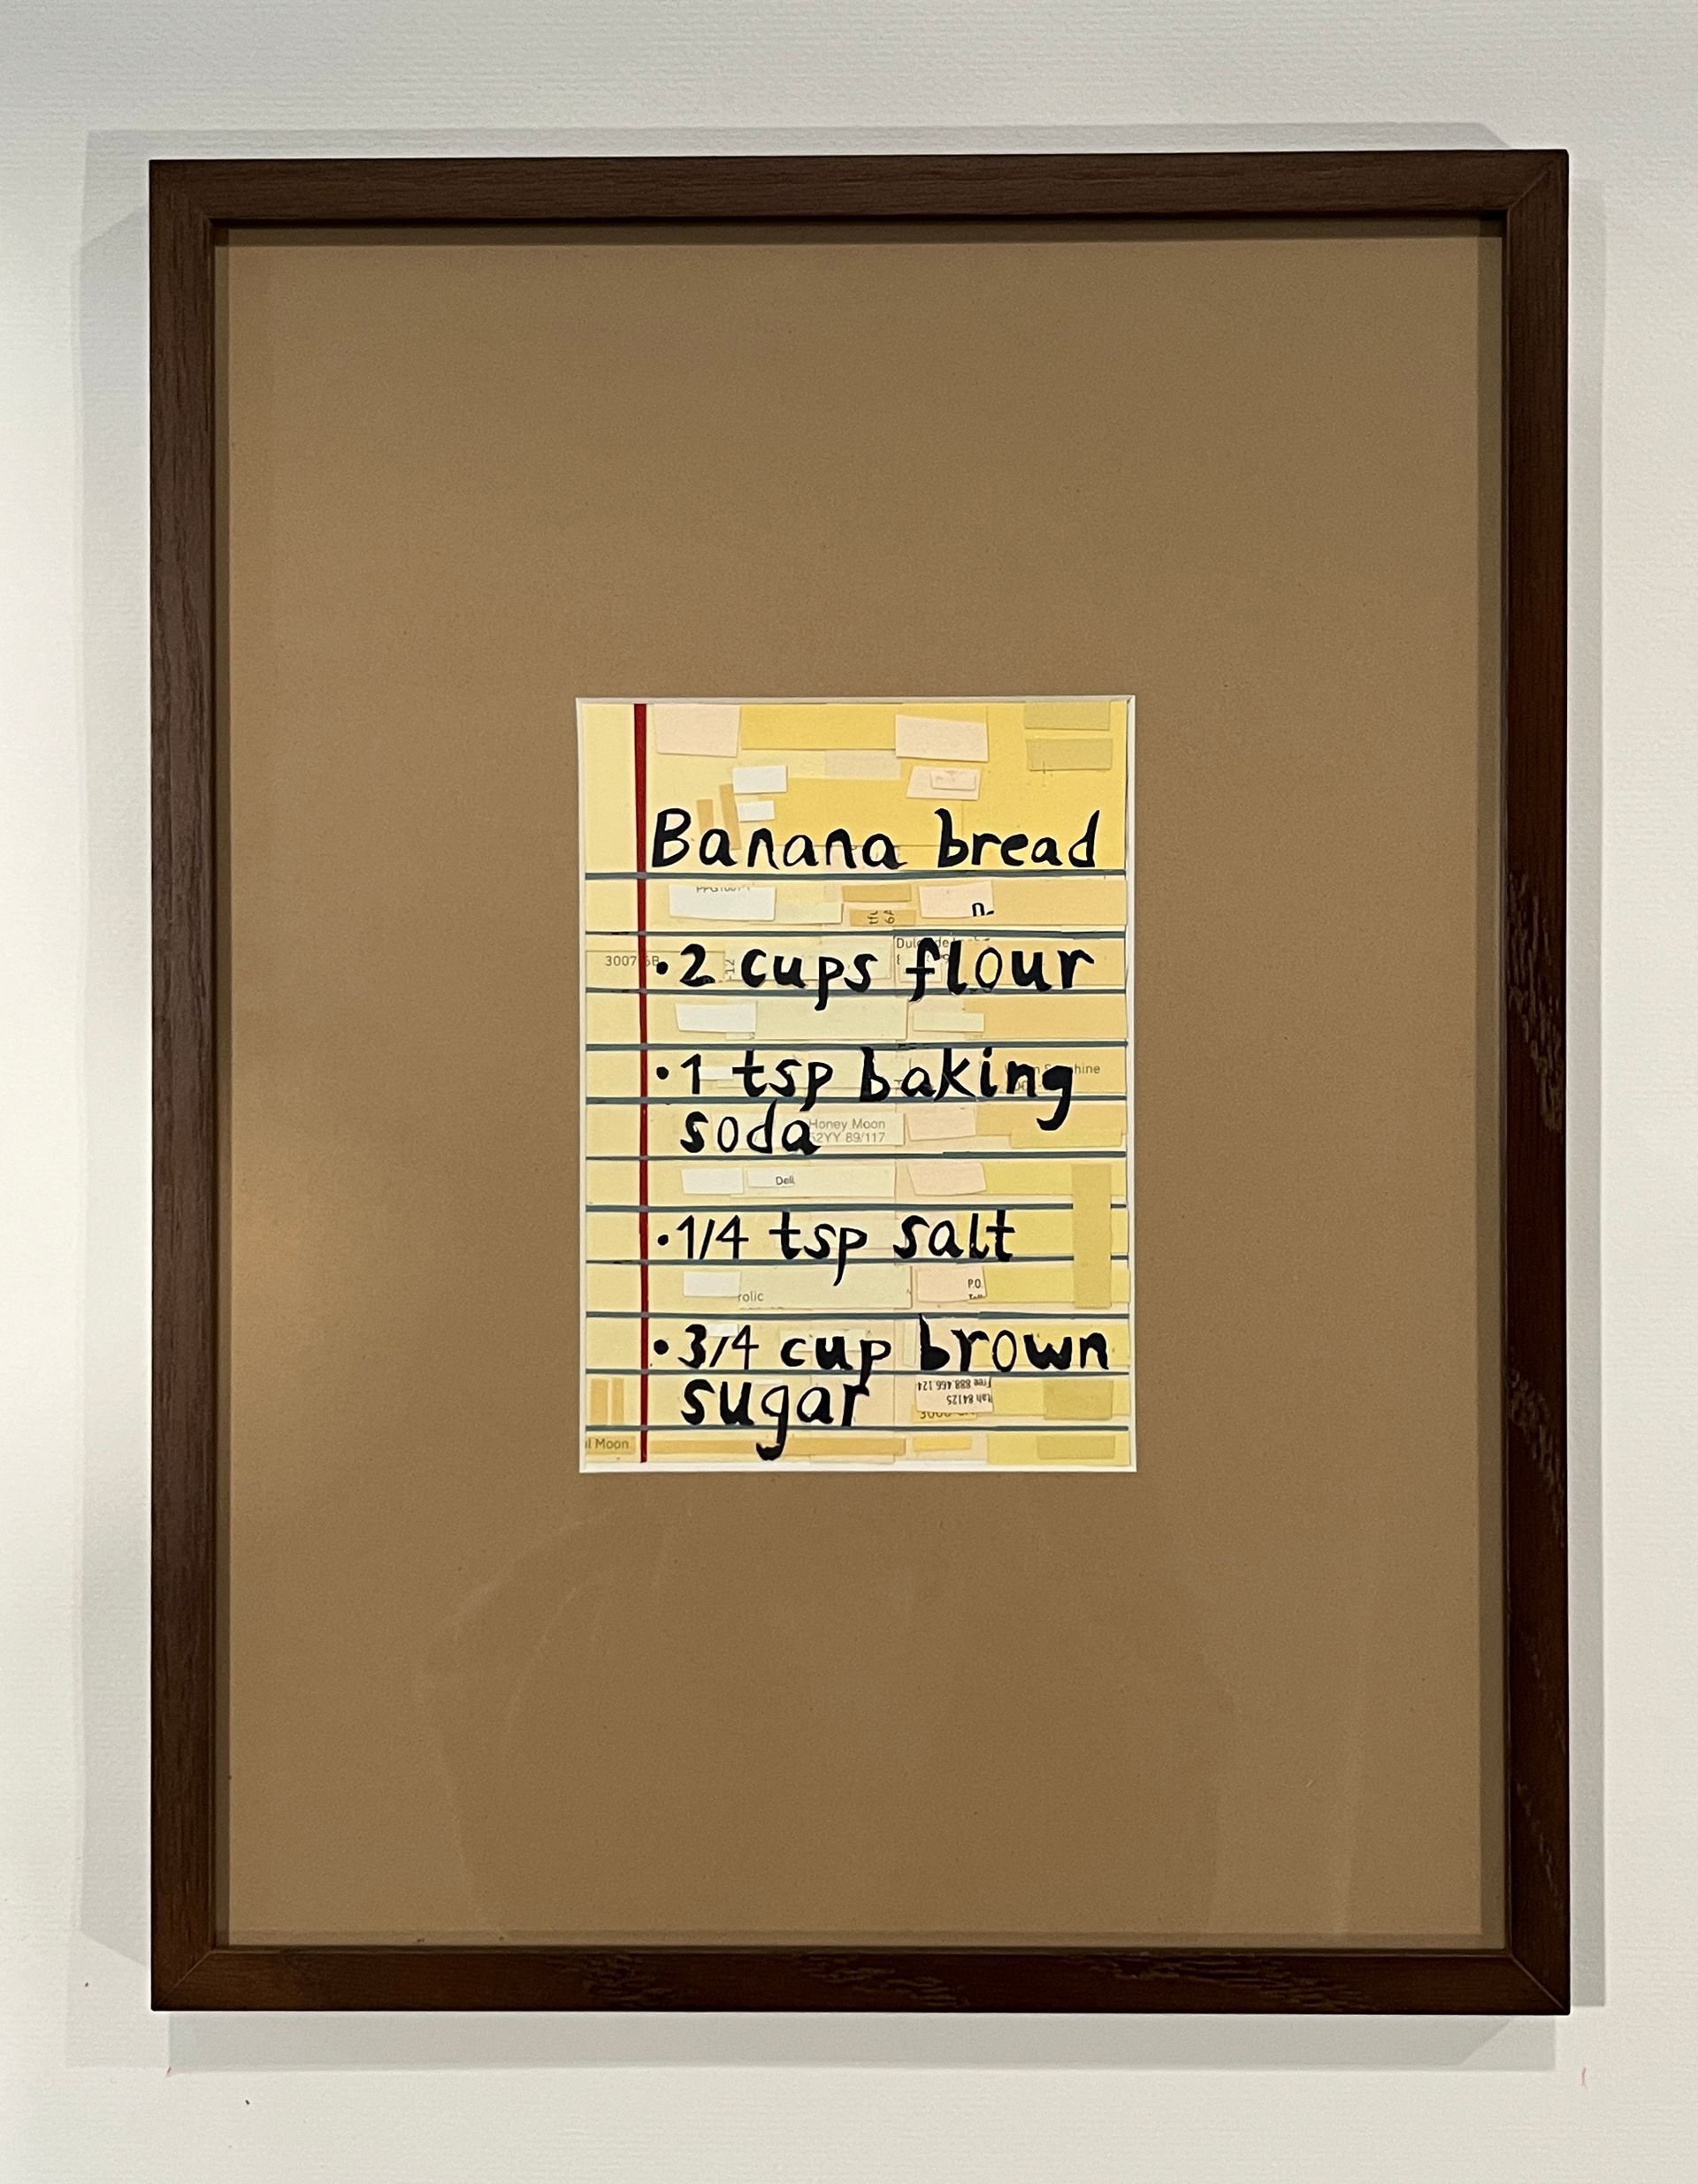 Banana bread
n.
3007 6B
• 2 cups flour
• 1 tsp baking
soda
Honey Moon
52YY 89/117
Deli
• 1/4 tsp salt
rolic
P.O.
• 3/4 cup brown
sugar
Free 888.466.124
tah 84125
l Moon